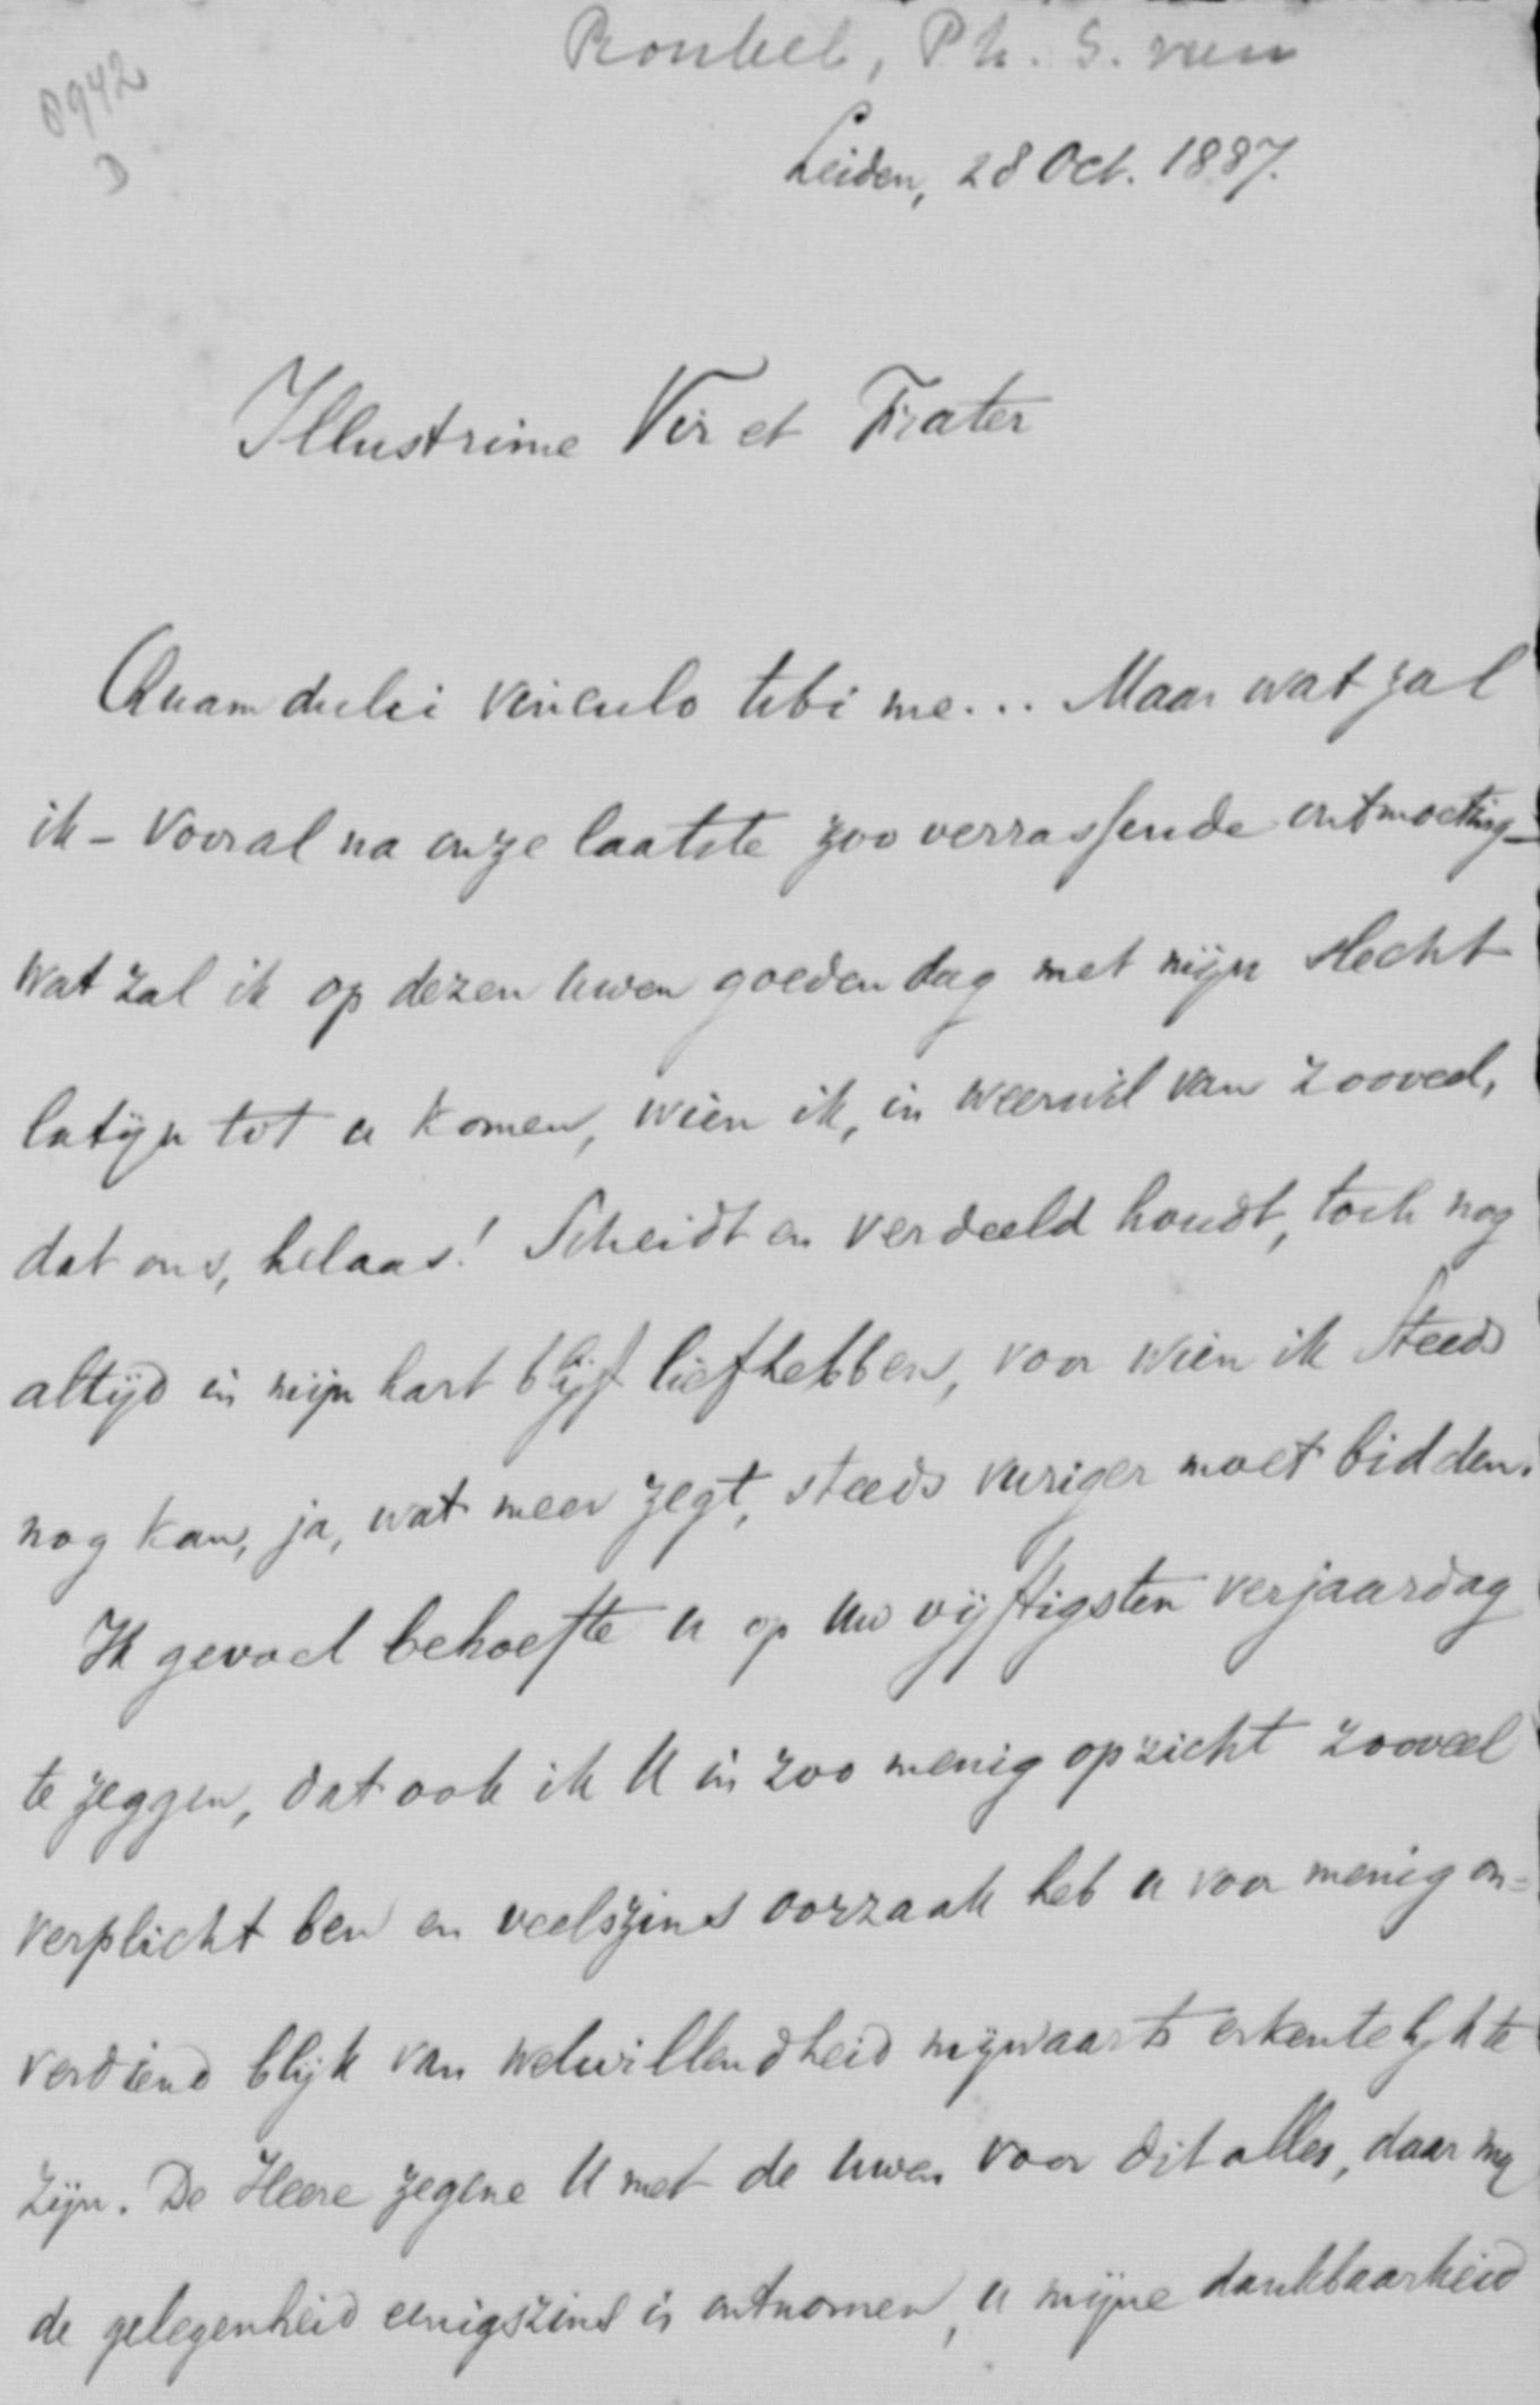 Ronkel, Ph. S. van
0942
D
Leiden, 28 Oct. 1887.
Illustrime Vir et Frater
Quam dulci vinculo tibi me... Maar wat zal
ik - vooral na onze laatste zoo verrassende ontmoeting -
wat zal ik op dezen uwen goeden dag met mijn slecht
latijn tot u komen, wien ik, in weerwil van zooveel,
dat ons, helaas! scheidt en verdeeld houdt, toch nog
altijd in mijn hart blijf liefhebben, voor wien ik steeds
nog kan, ja, wat meer zegt, steeds vuriger moet bidden.
Ik gevoel behoefte u op uw vijftigsten verjaardag
te zeggen, dat ook ik U in zoo menig opzicht zooveel
verplicht ben en veelszins oorzaak heb u voor menig on=
verdiend blijk van welwillendheid mijwaarts erkentelijk te
zijn. De Heere zegene U met de uwen voor dit alles, daar mij
de gelegenheid eenigszins is ontnomen, u mijne dankbaarheid